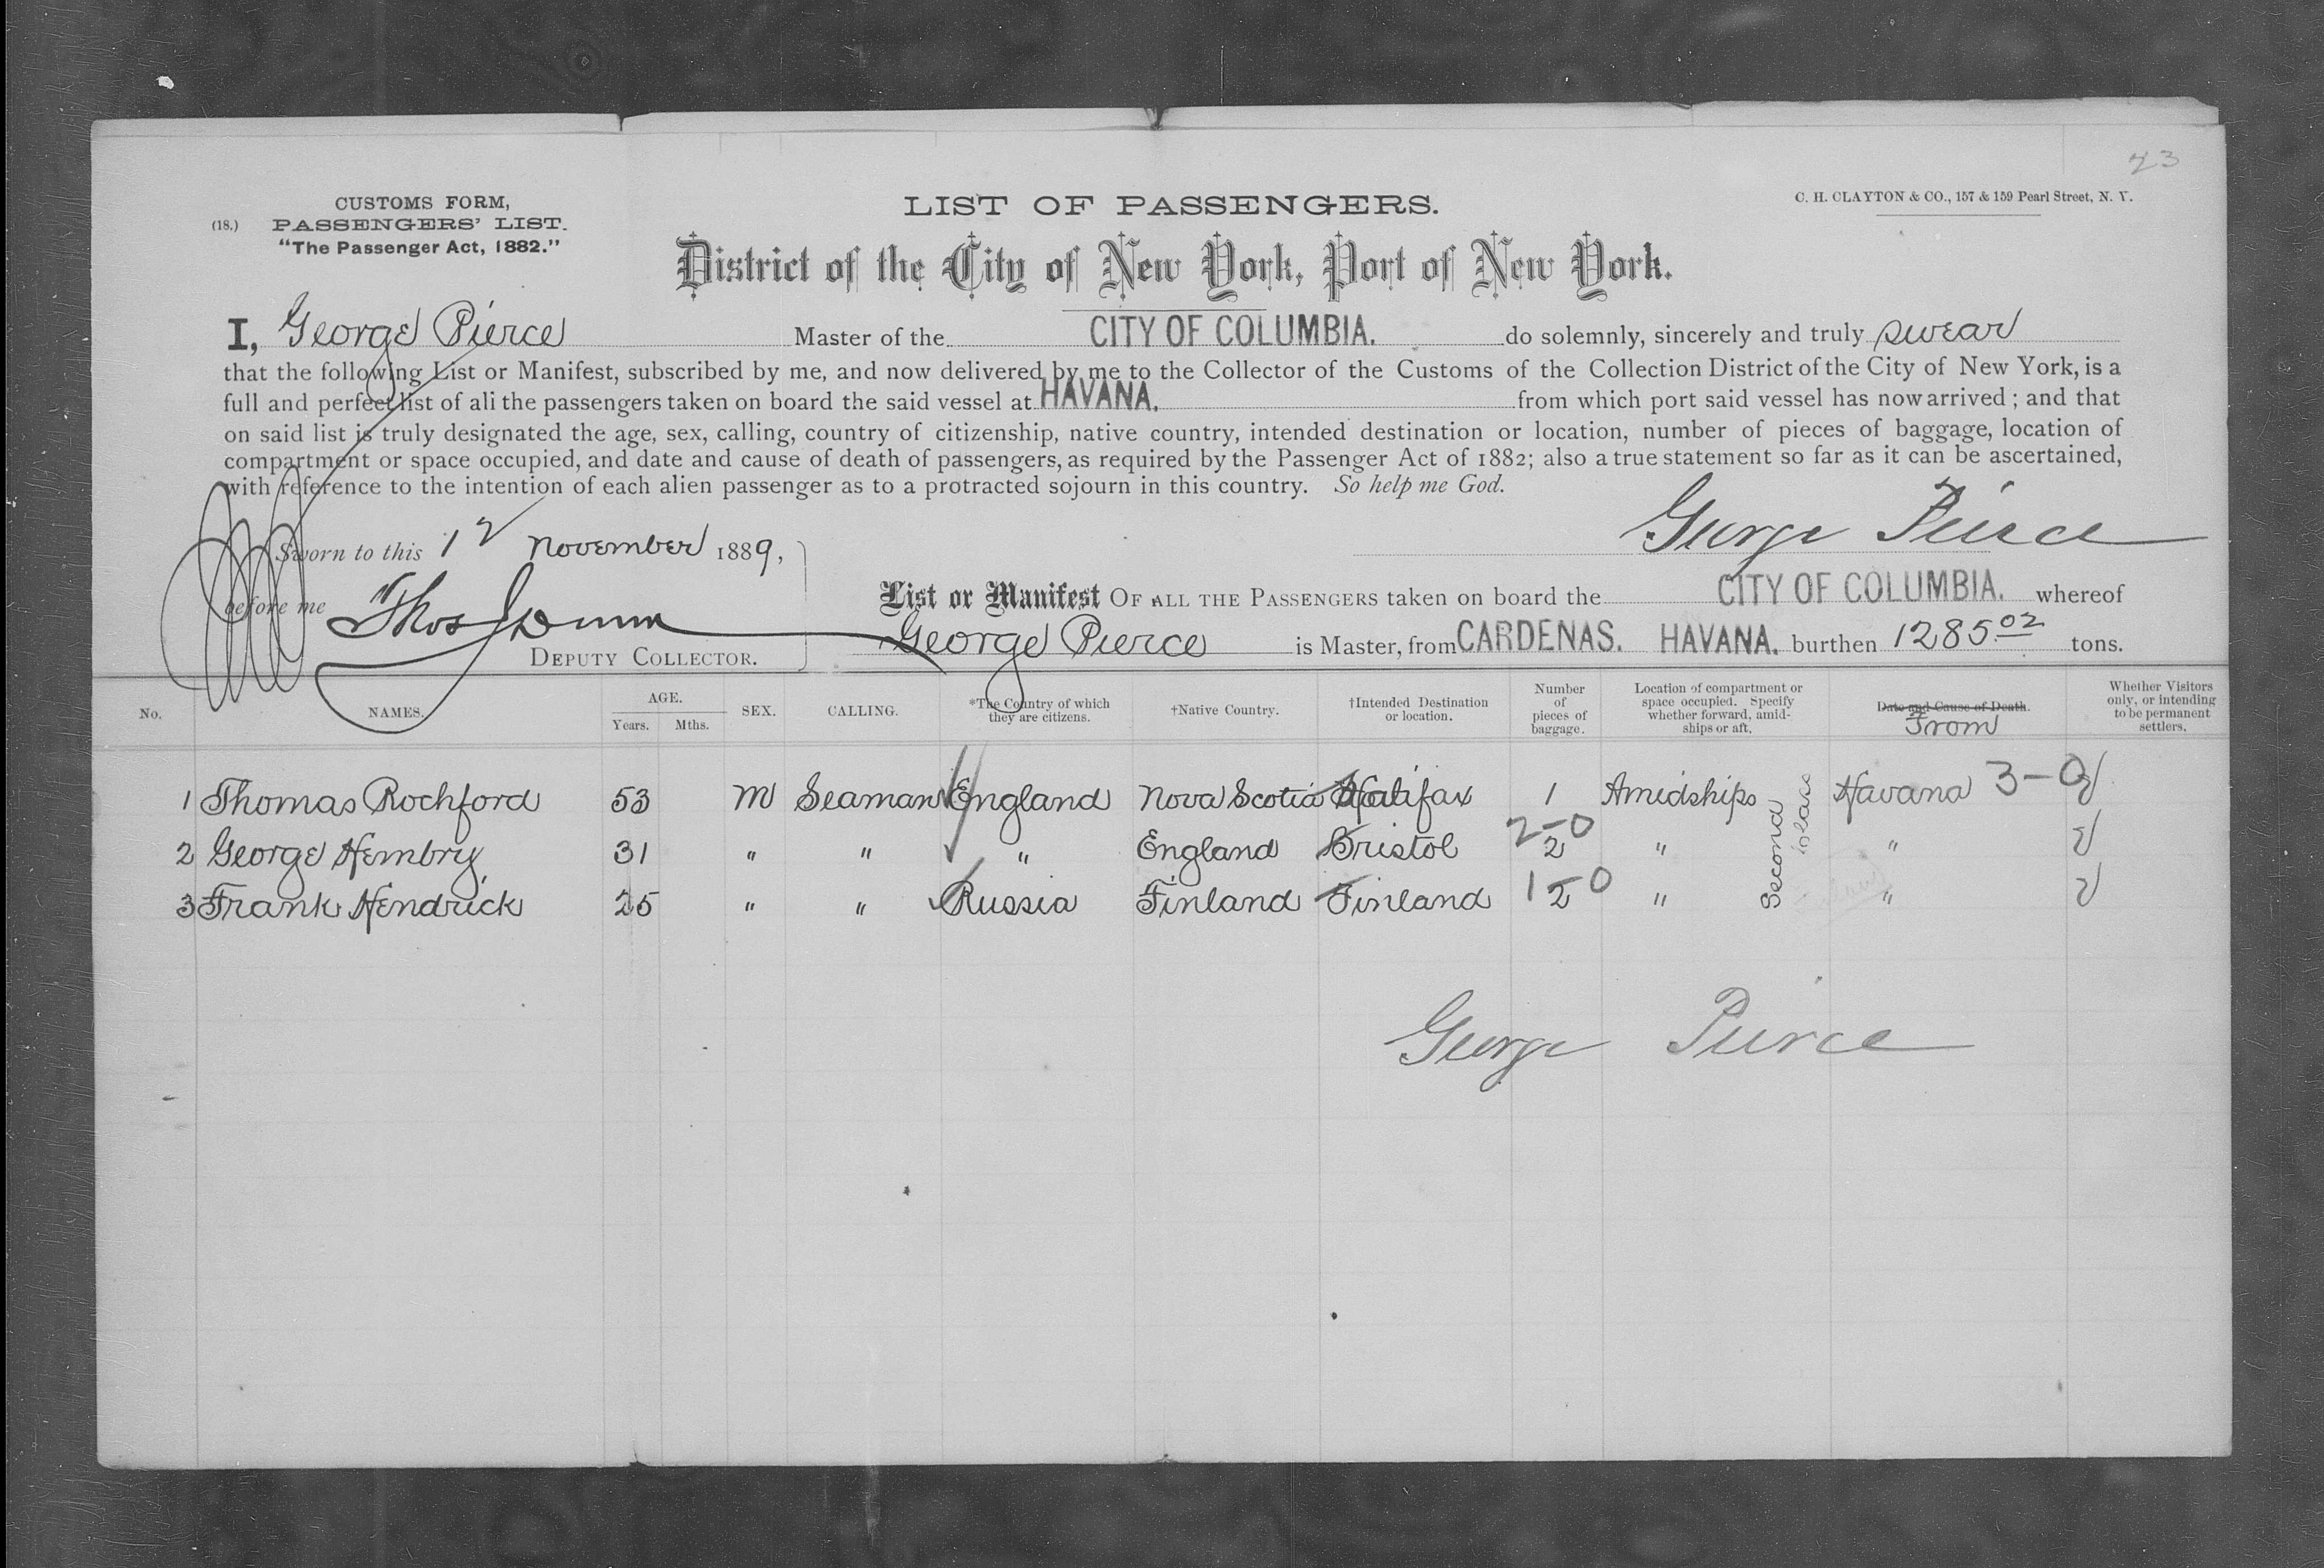 23
CUSTOMS FORM,
(18.) PASSENGERS' LIST.
"The Passenger Act, 1882."
LIST OF PASSENGERS.
C. H. CLAYTON & CO., 157 & 159 Pearl Street, N. Y.
District of the City of New York, Port of New York.
I, George Pierce Master of the CITY OF COLUMBIA. do solemnly, sincerely and truly swear
that the following List or Manifest, subscribed by me, and now delivered by me to the Collector of the Customs of the Collection District of the City of New York, is a
full and perfect list of all the passengers taken on board the said vessel at HAVANA. from which port said vessel has now arrived; and that
on said list is truly designated the age, sex, calling, country of citizenship, native country, intended destination or location, number of pieces of baggage, location of
compartment or space occupied, and date and cause of death of passengers, as required by the Passenger Act of 1882; also a true statement so far as it can be ascertained,
with reference to the intention of each alien passenger as to a protracted sojourn in this country. So help me God.
George Pierce
Sworn to this 12 November 1889,
before me Thos Dunn
DEPUTY COLLECTOR.
List or Manifest OF ALL THE PASSENGERS taken on board the CITY OF COLUMBIA. whereof
George Pierce is Master, from CARDENAS. HAVANA. burthen 1285.02 tons.
No. NAMES. AGE. Years. Mths. SEX. CALLING. *The Country of which they are citizens. †Native Country. †Intended Destination or location. Number of pieces of baggage. Location of compartment or space occupied. Specify whether forward, amidships or aft. Date and Cause of Death. From Whether Visitors only, or intending to be permanent settlers.
1 Thomas Rochford 53 M Seaman England Nova Scotia Halifax 1 Amidships Havana 3-0
2 George Hembry 31 " " " England Bristol 2-0 2 " "
3 Frank Hendrick 25 " " Russia Finland Finland 1-0 2 " "
Second class
George Pierce